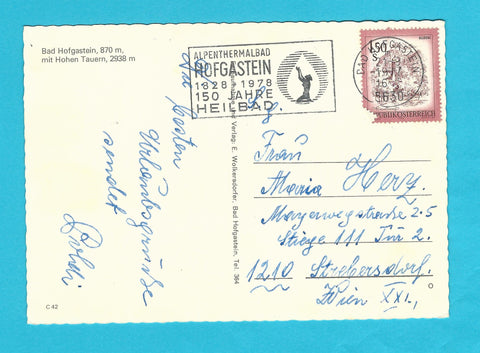 Bad Hofgastein, 870 m,
mit Hohen Tauern, 2938 m
ALPENTHERMALBAD
HOFGASTEIN
1828 - 1978
150 JAHRE
HEILBAD
5630
REPUBLIK ÖSTERREICH
Besten
Urlaubsgrüße
sendet
Poldi
Verlag: E. Wolkersdorfer, Bad Hofgastein, Tel. 364
Frau
Maria Herz
Mayerweckstraße 2-5
Stiege 111 Tür 2.
1210 Strebersdorf.
Wien XXI.,
C 42